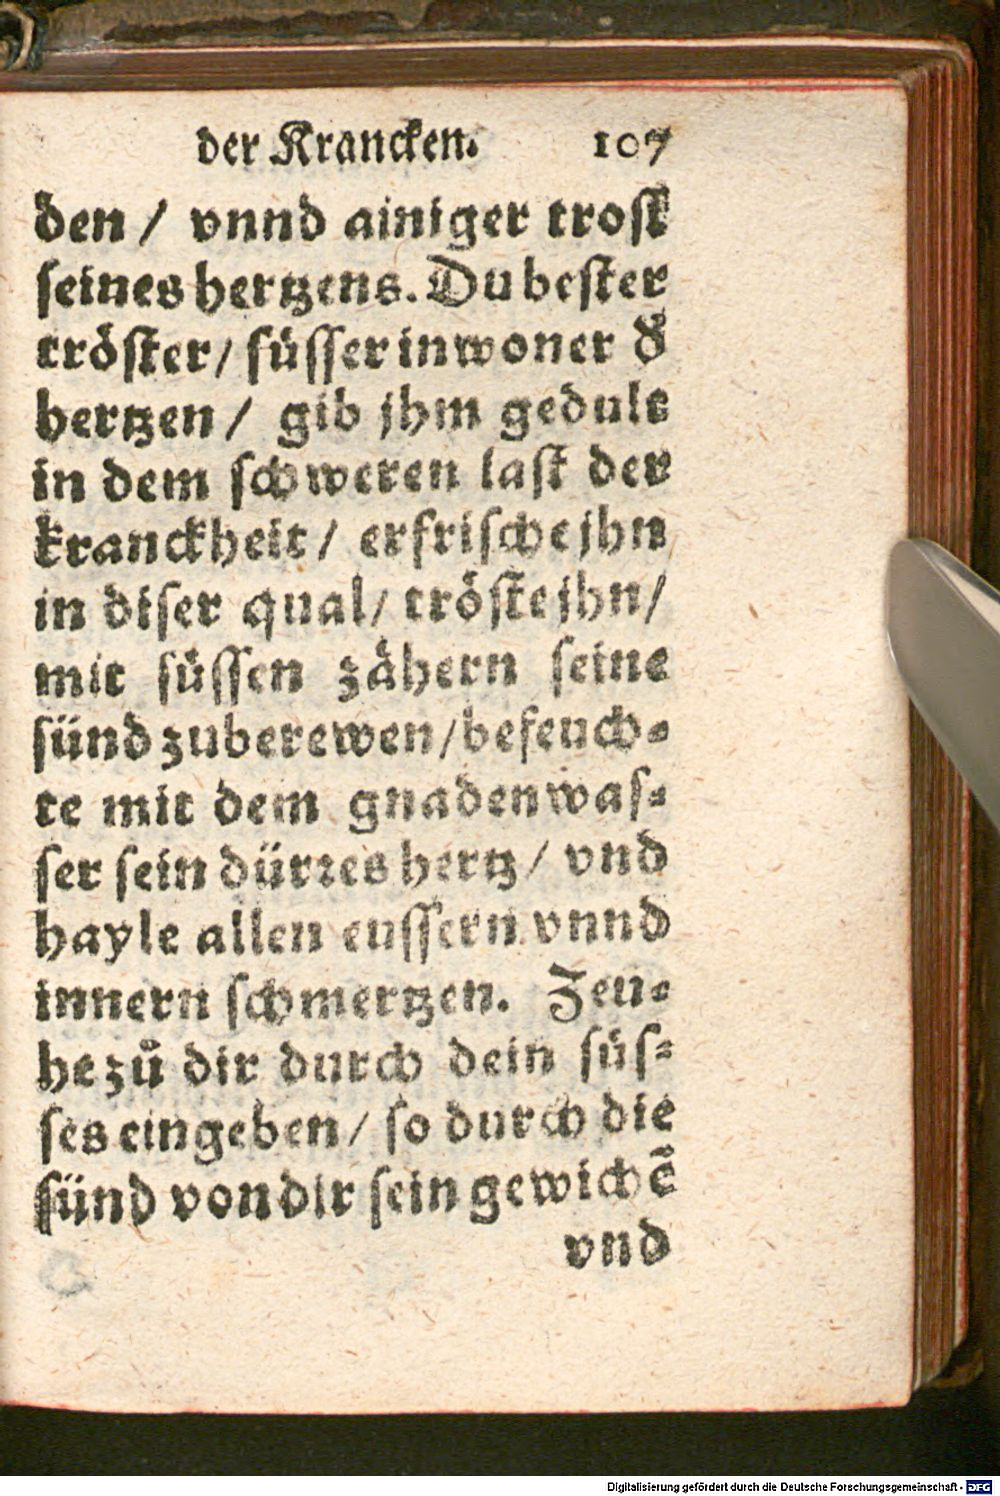 der Krancken. 107
den / vnnd ainiger trost
seines hertzens. Du bester
tröster / süsser inwoner d̕
hertzen / gib jhm gedult
in dem schweren last der
kranckheit / erfrische jhn
in diser qual / tröste jhn /
mit süssen zähern seine
sünd zuberewen / befeuch-
te mit dem gnadenwas-
ser sein dürres hertz / vnd
hayle allen eussern vnnd
innern schmertzen. Zeu-
he zů dir durch dein süs-
ses eingeben / so durch die
sünd von dir sein gewichē
vnd
Digitalisierung gefördert durch die Deutsche Forschungsgemeinschaft - DFG